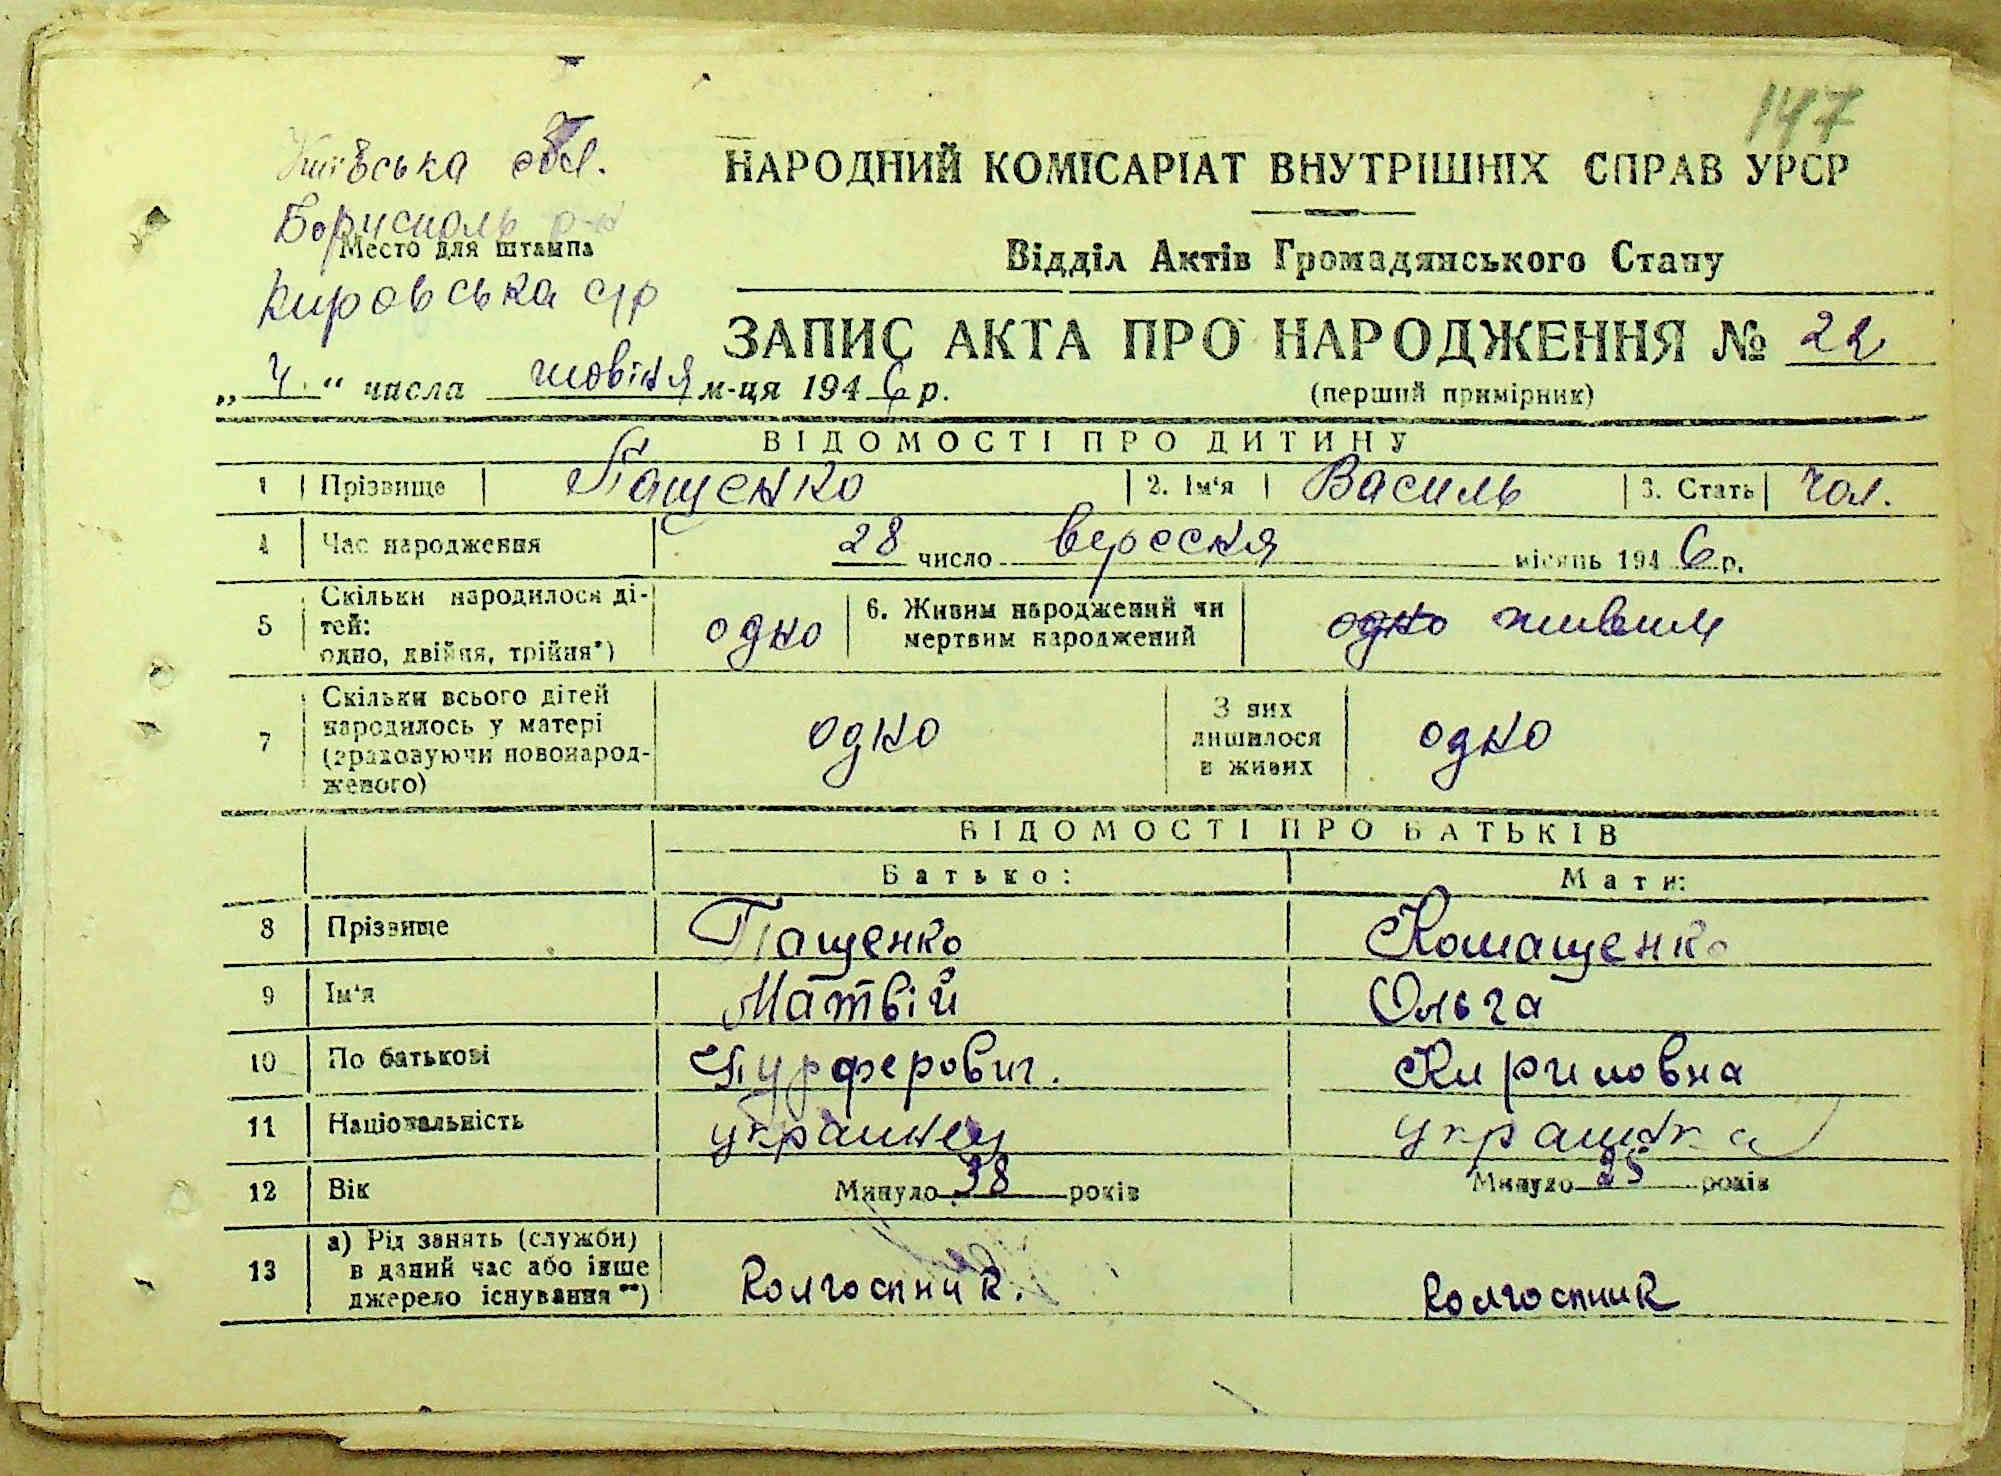 147
Київська обл.
Бориспль р-н
Место для штампа
Кировська с/р
НАРОДНИЙ КОМІСАРІАТ ВНУТРІШНІХ СПРАВ УРСР
Відділ Актів Громадянського Стану
ЗАПИС АКТА ПРО НАРОДЖЕННЯ № 22
(перший примірник)
„ 4 “ числа жовтня м-ця 1946 р.
ВІДОМОСТІ ПРО ДИТИНУ
1 Прізвище Пащенко 2. Ім'я Василь 3. Стать чол.
4 Час народження 28 число вересня місяць 1946 р.
5 Скільки народилося ді-
тей:
одно, двійня, трійня*) одно 6. Живим народжений чи
мертвим народжений одно живим
7 Скільки всього дітей
народилось у матері
(враховуючи новонарод-
женого) одно З них
лишилося
в живих одно
ВІДОМОСТІ ПРО БАТЬКІВ
Батько: Мати:
8 Прізвище Пащенко Комащенко
9 Ім'я Матвій Ольга
10 По батькові Кириловна
11 Національність українец українка
12 Вік Минуло 38 років Минуло 25 років
13 а) Рід занять (служби)
в даний час або інше
джерело існування **) Колгоспник. Колгоспник